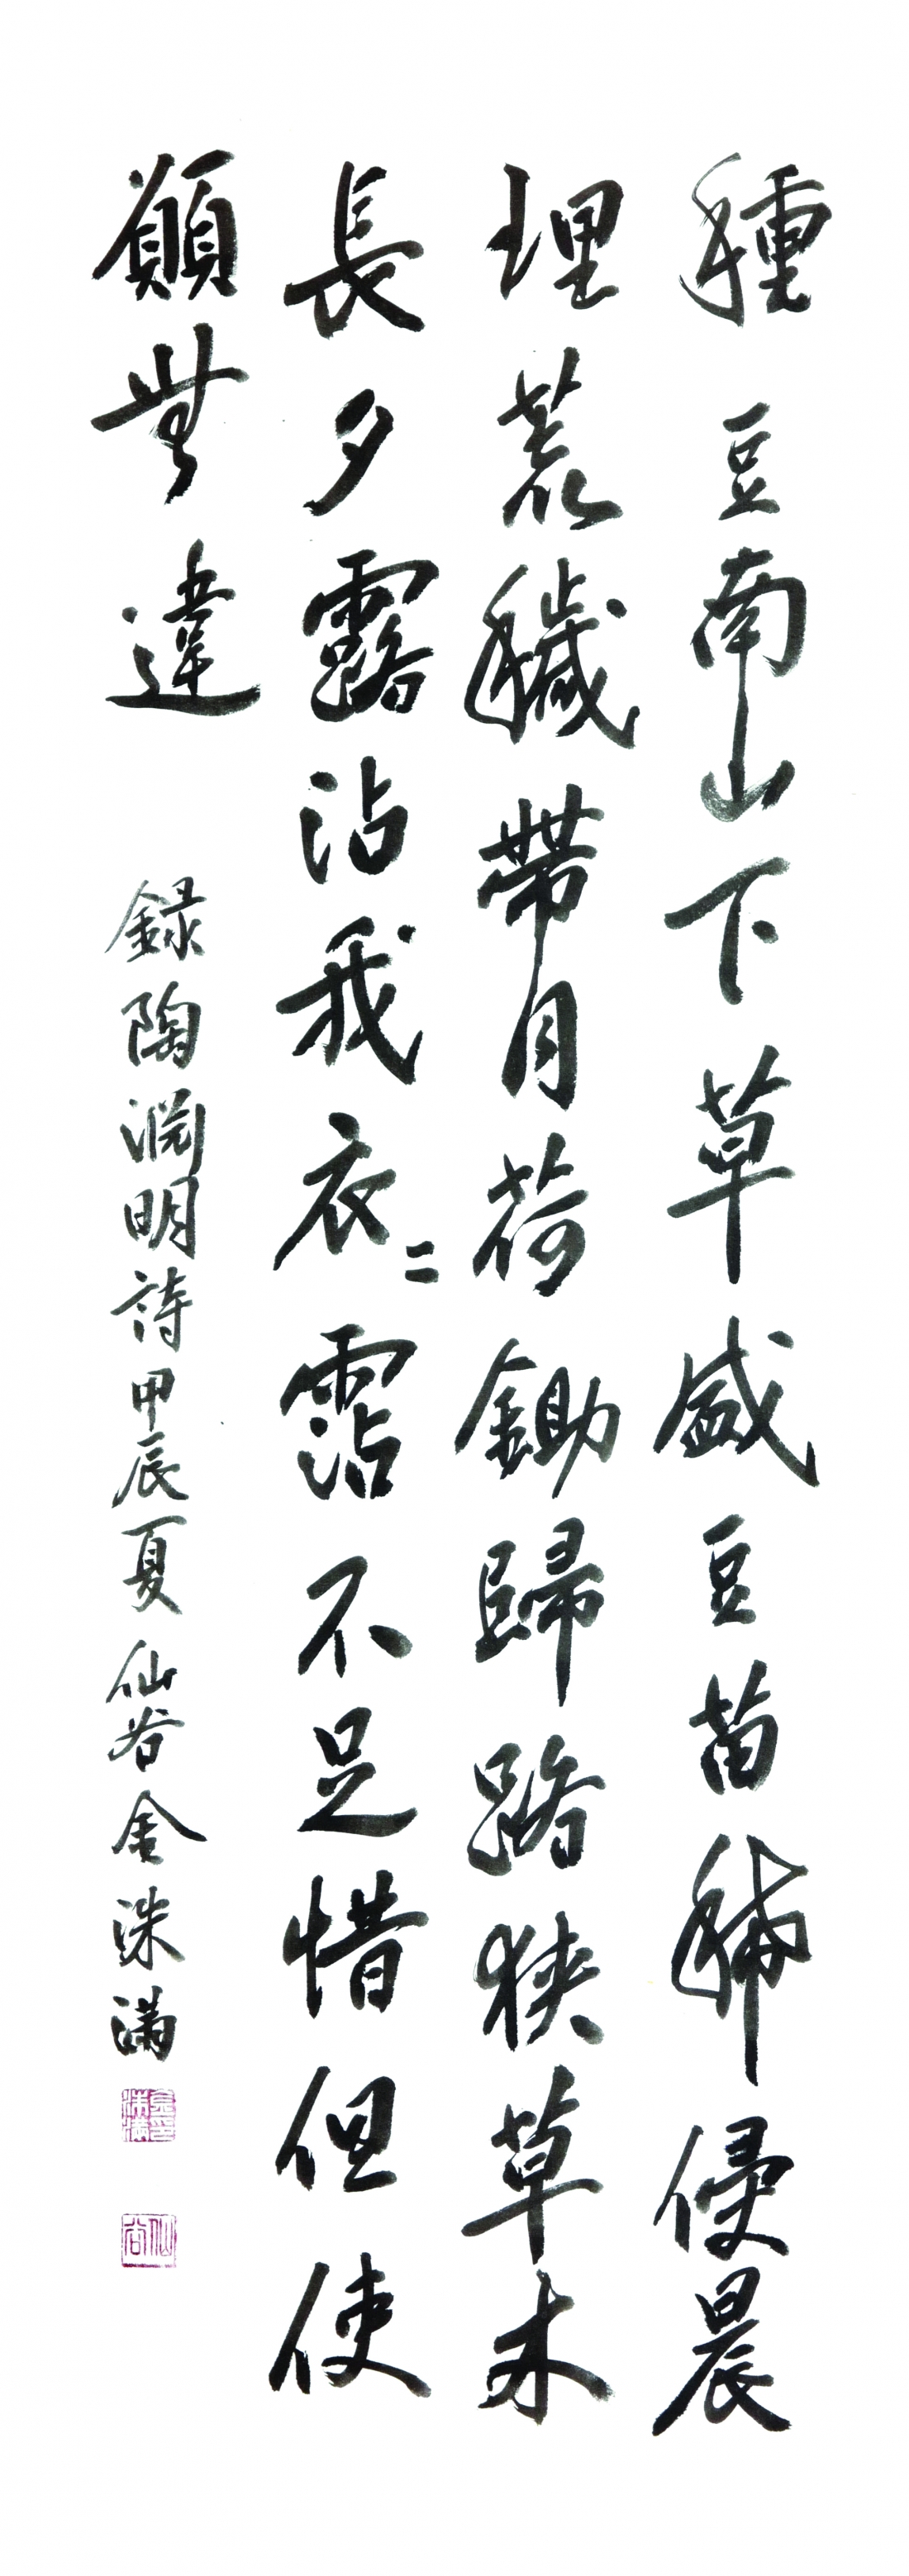 種豆南山下草盛豆苗稀侵晨
理荒穢帶月荷鋤歸路狹草木
長夕露沾我衣〻霑不足惜但使
願無違 錄陶淵明詩甲辰夏仙谷金洙滿
金印洙滿
仙谷